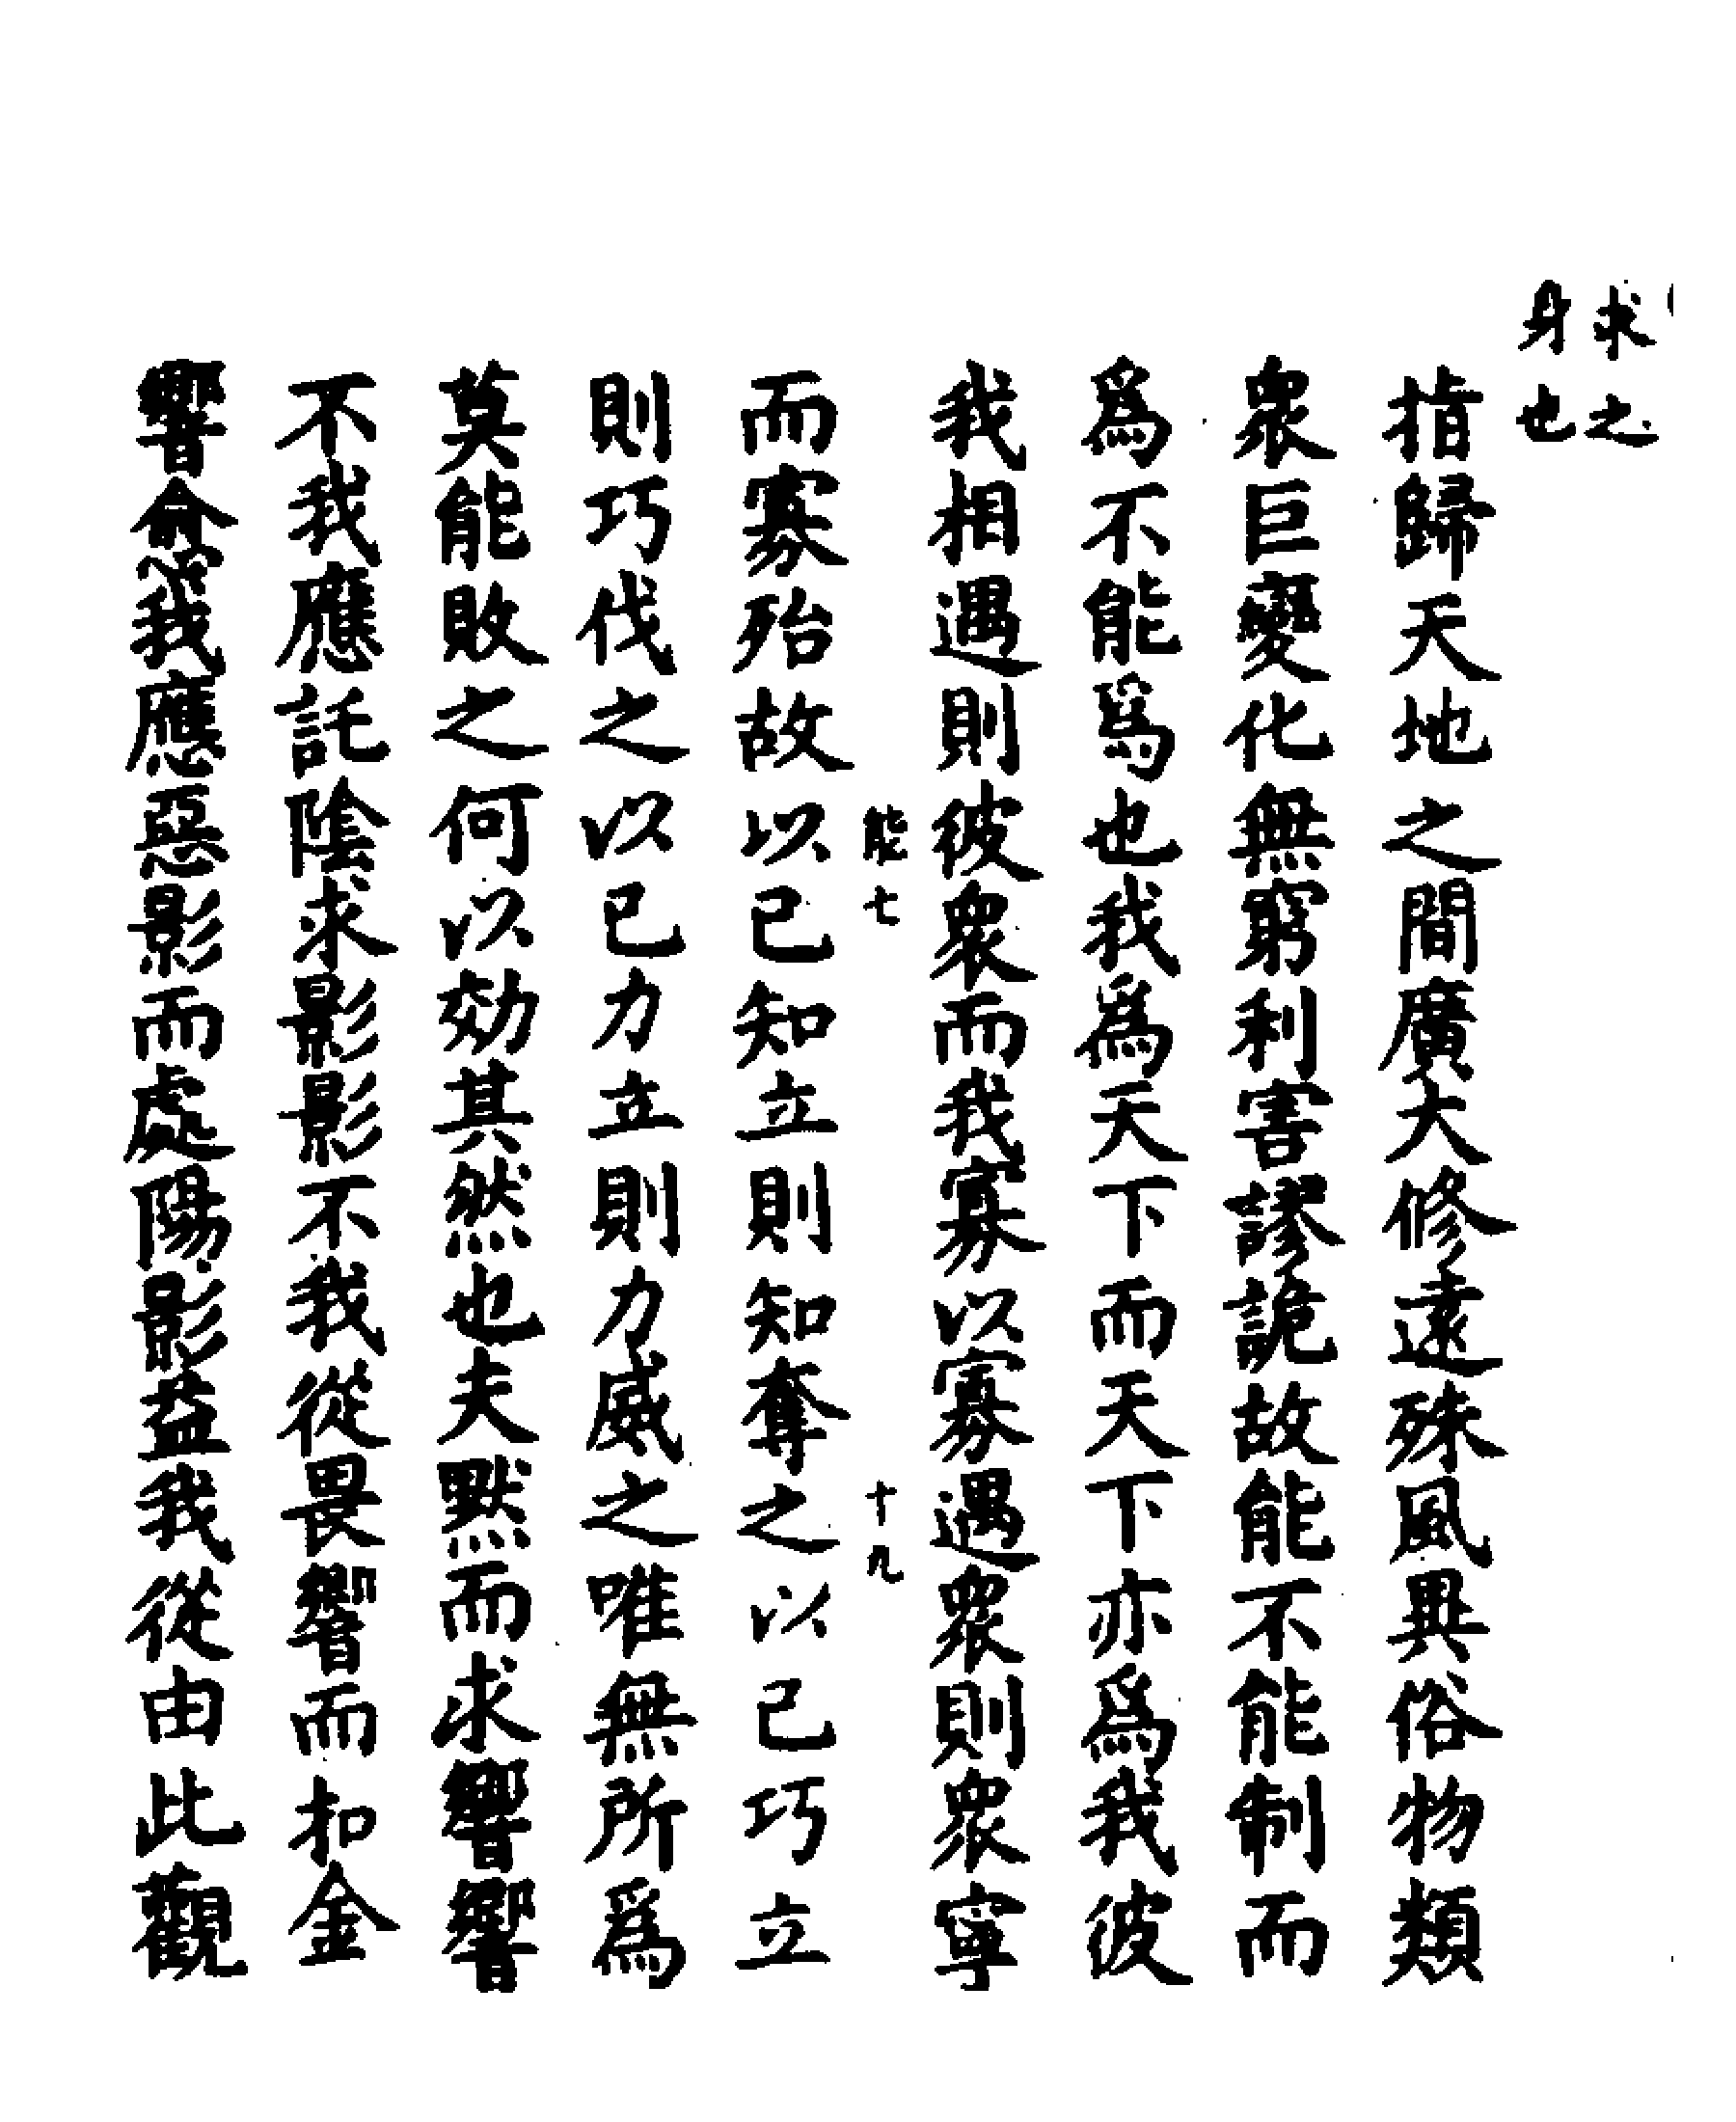 求之
身也
指歸天地之間廣大修遠殊風異俗物類
衆巨變化無窮利害謬詭故能不能制而
爲不能爲也我爲天下而天下亦爲我彼
我相遇則彼衆而我寡以寡遇衆則衆寧
能七 十九
而寡殆故以已知立則知奪之以已巧立
則巧伐之以已力立則力威之唯無所爲
莫能敗之何以効其然也夫默而求響響
不我應託陰求影影不我從畏響而扣金
響愈我應惡影而處陽影益我從由此觀